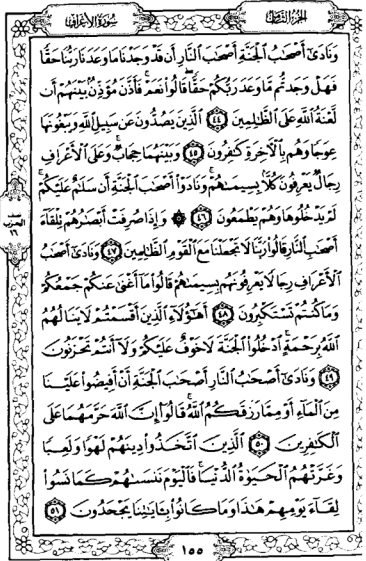 الجزء الثامن
سورة الأعراف
وَنَادَىٰٓ أَصْحَٰبُ ٱلْجَنَّةِ أَصْحَٰبَ ٱلنَّارِ أَن قَدْ وَجَدْنَا مَا وَعَدَنَا رَبُّنَا حَقًّا
فَهَلْ وَجَدتُّم مَّا وَعَدَ رَبُّكُمْ حَقًّا قَالُوا۟ نَعَمْ فَأَذَّنَ مُؤَذِّنٌۢ بَيْنَهُمْ أَن
لَّعْنَةُ ٱللَّهِ عَلَى ٱلظَّٰلِمِينَ ٤٤ ٱلَّذِينَ يَصُدُّونَ عَن سَبِيلِ ٱللَّهِ وَيَبْغُونَهَا
عِوَجًا وَهُم بِٱلْءَاخِرَةِ كَٰفِرُونَ ٤٥ وَبَيْنَهُمَا حِجَابٌ وَعَلَى ٱلْأَعْرَافِ
رِجَالٌ يَعْرِفُونَ كُلًّۢا بِسِيمَىٰهُمْ وَنَادَوْا۟ أَصْحَٰبَ ٱلْجَنَّةِ أَن سَلَٰمٌ عَلَيْكُمْ
لَمْ يَدْخُلُوهَا وَهُمْ يَطْمَعُونَ ٤٦ ۞ وَإِذَا صُرِفَتْ أَبْصَٰرُهُمْ تِلْقَآءَ
أَصْحَٰبِ ٱلنَّارِ قَالُوا۟ رَبَّنَا لَا تَجْعَلْنَا مَعَ ٱلْقَوْمِ ٱلظَّٰلِمِينَ ٤٧ وَنَادَىٰٓ أَصْحَٰبُ
ٱلْأَعْرَافِ رِجَالًا يَعْرِفُونَهُم بِسِيمَىٰهُمْ قَالُوا۟ مَآ أَغْنَىٰ عَنكُمْ جَمْعُكُمْ
وَمَا كُنتُمْ تَسْتَكْبِرُونَ ٤٨ أَهَٰٓؤُلَآءِ ٱلَّذِينَ أَقْسَمْتُمْ لَا يَنَالُهُمُ
ٱللَّهُ بِرَحْمَةٍ ٱدْخُلُوا۟ ٱلْجَنَّةَ لَا خَوْفٌ عَلَيْكُمْ وَلَآ أَنتُمْ تَحْزَنُونَ
٤٩ وَنَادَىٰٓ أَصْحَٰبُ ٱلنَّارِ أَصْحَٰبَ ٱلْجَنَّةِ أَنْ أَفِيضُوا۟ عَلَيْنَا
مِنَ ٱلْمَآءِ أَوْ مِمَّا رَزَقَكُمُ ٱللَّهُ قَالُوٓا۟ إِنَّ ٱللَّهَ حَرَّمَهُمَا عَلَى
ٱلْكَٰفِرِينَ ٥٠ ٱلَّذِينَ ٱتَّخَذُوا۟ دِينَهُمْ لَهْوًا وَلَعِبًا
وَغَرَّتْهُمُ ٱلْحَيَوٰةُ ٱلدُّنْيَا فَٱلْيَوْمَ نَنسَىٰهُمْ كَمَا نَسُوا۟
لِقَآءَ يَوْمِهِمْ هَٰذَا وَمَا كَانُوا۟ بِـَٔايَٰتِنَا يَجْحَدُونَ ٥١
نصف
الحزب
١٦
١٥٥